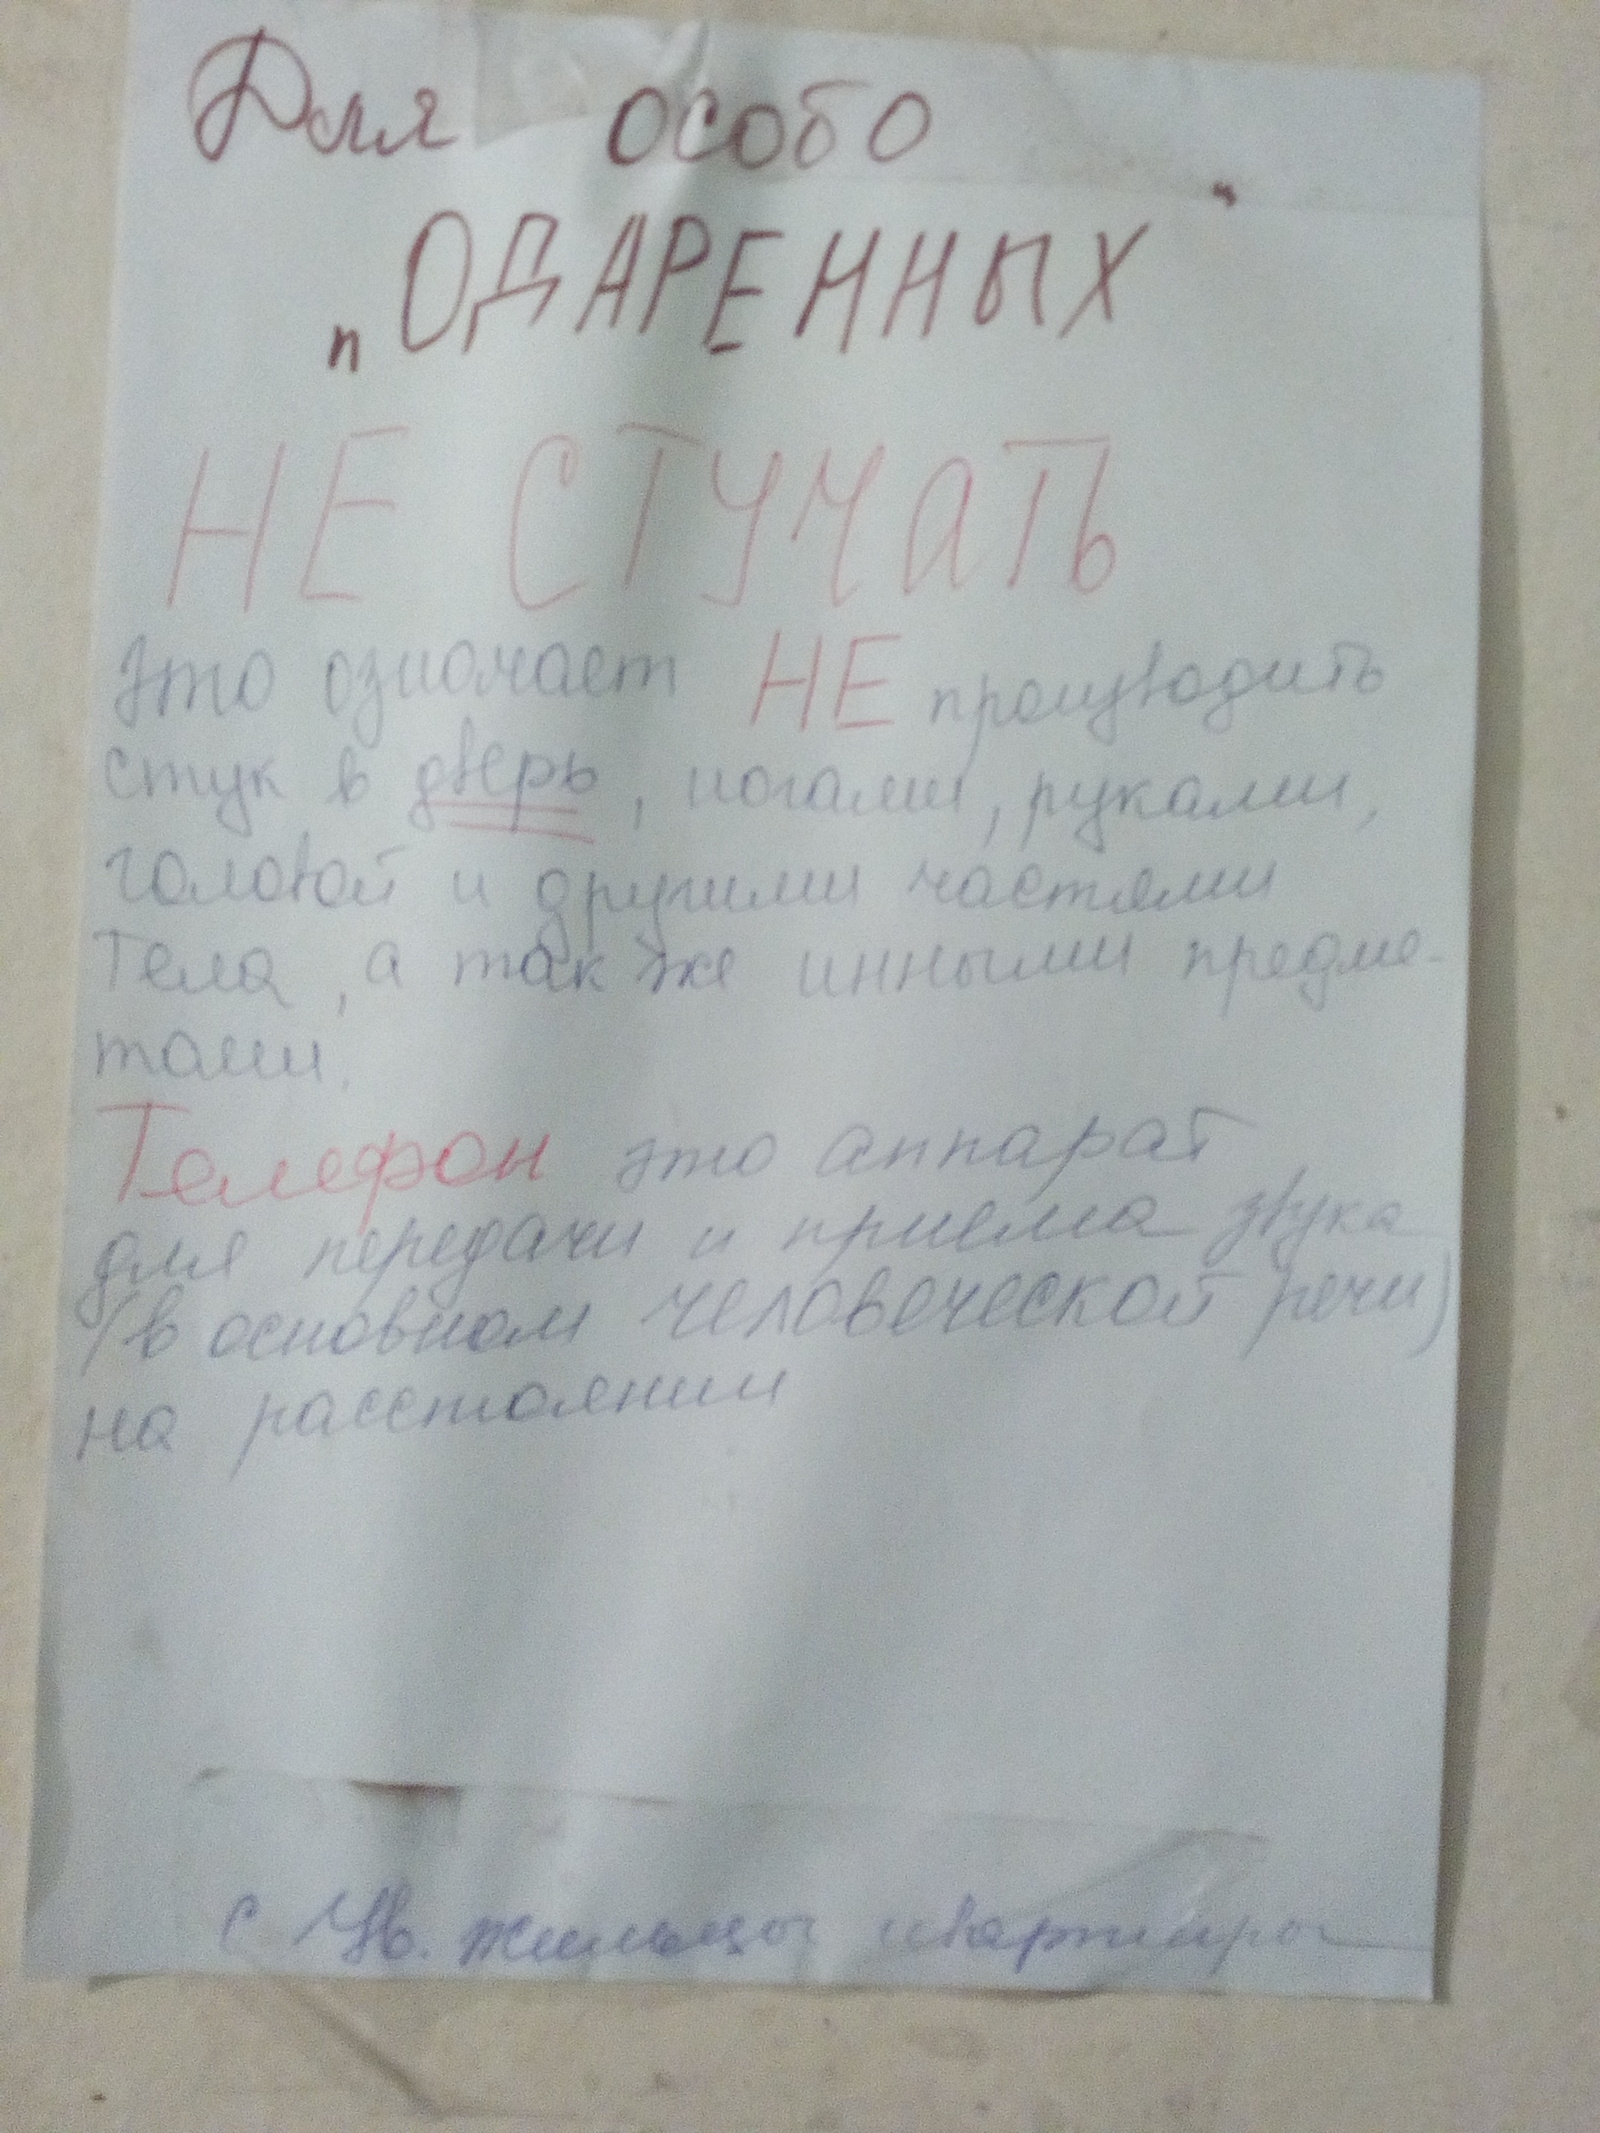 Для особо
„ОДАРЕННЫХ"
НЕ СТУЧАТЬ
Это означает НЕ производить
стук в дверь, ногами, руками,
головой и другими частями
тела, а так же инными предме-
тами.
Телефон это аппарат
для передачи и приема звука
(в основном человеческой речи)
на расстоянии
С Ув. жильцы квартиры